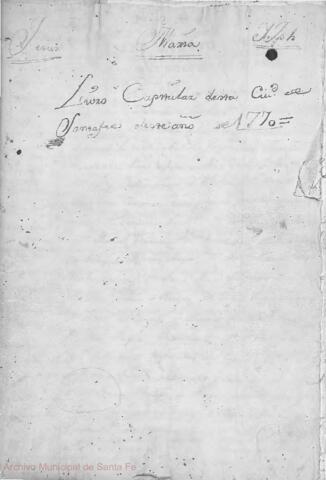 Jesus Maria Jph
Livro Capitular desta Ciud. de
Santafee deste año de 1770=
Archivo Municipal de Santa Fe